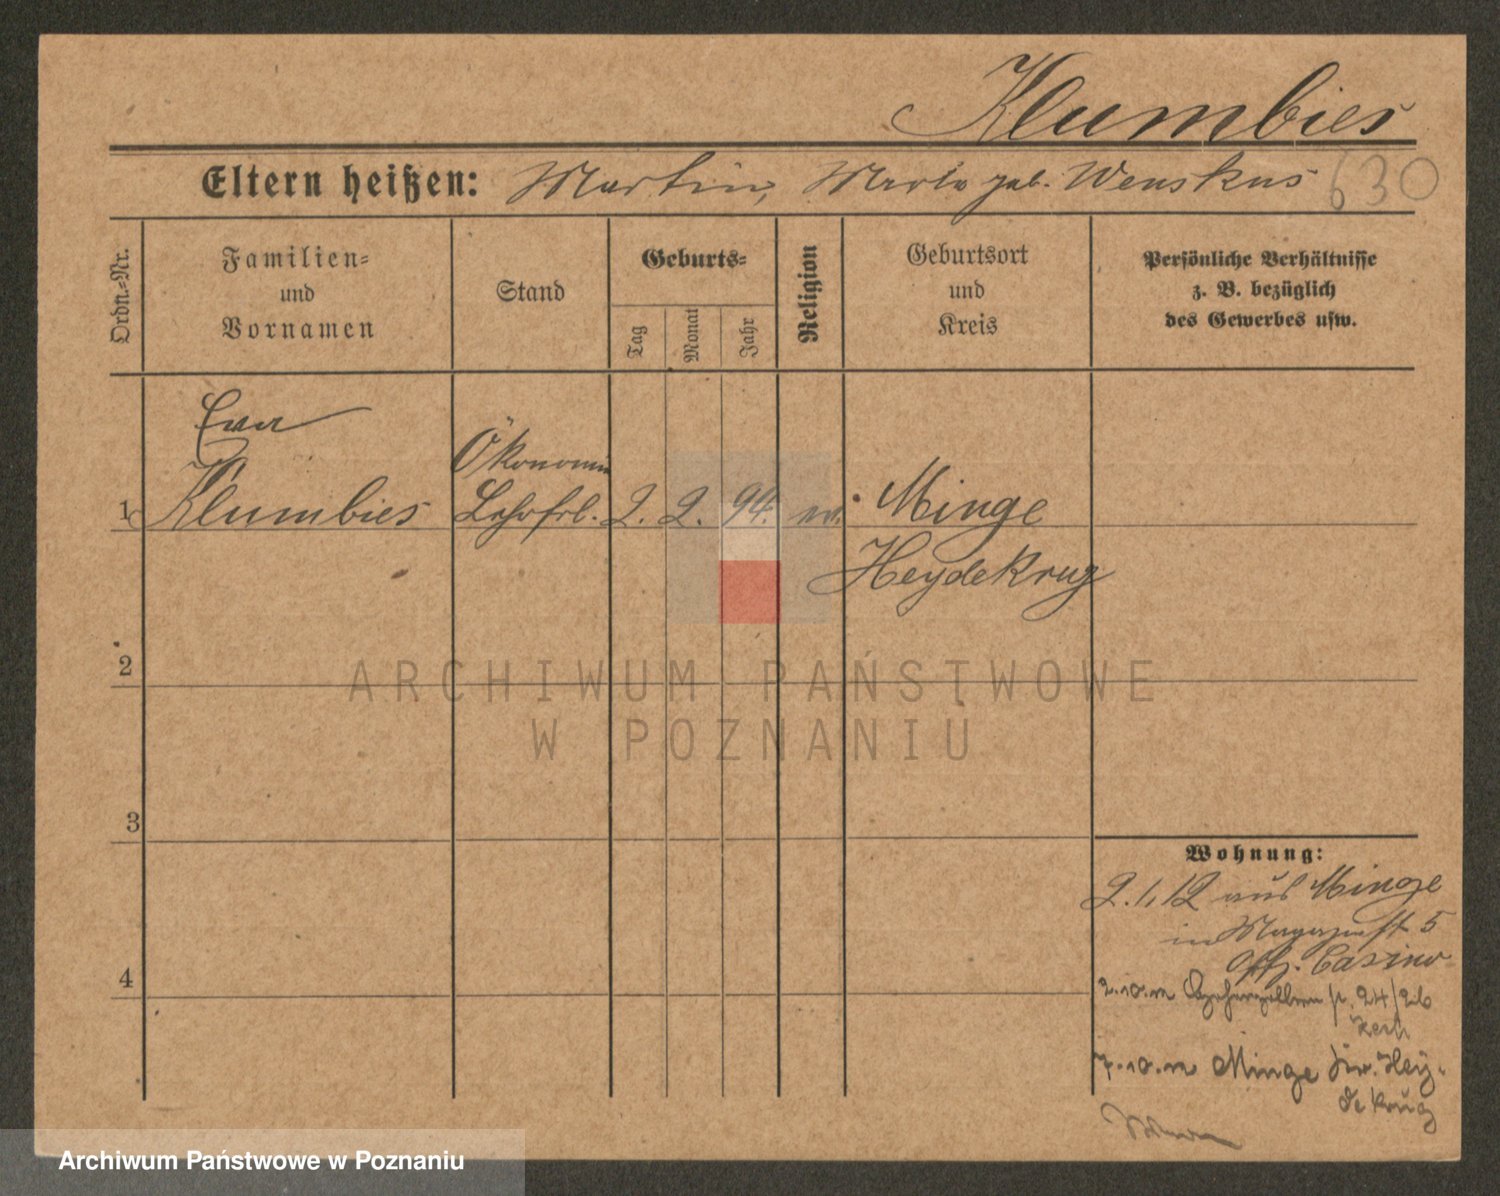 Klumbies
Eltern heißen: Martin, Marie geb. Wenskus 630
Ordn.-Nr.
Familien-
und
Vornamen
Stand
Geburts-
Tag
Monat
Jahr
Religion
Geburtsort
und
Kreis
Persönliche Verhältnisse
z. B. bezüglich
des Gewerbes usw.
Eva
Ökonomie
1 Klumbies Lehrfrl. 2. 2. 94. ev. Minge
Heydekrug
2
ARCHIWUM PAŃSTWOWE
W POZNANIU
3
Wohnung:
2.1.12 aus Minge
in Magazinst 5
Offz. Casino
4
2.10.12 24/26
7.10.12 Minge Krs. Hey-
dekrug
Archiwum Państwowe w Poznaniu